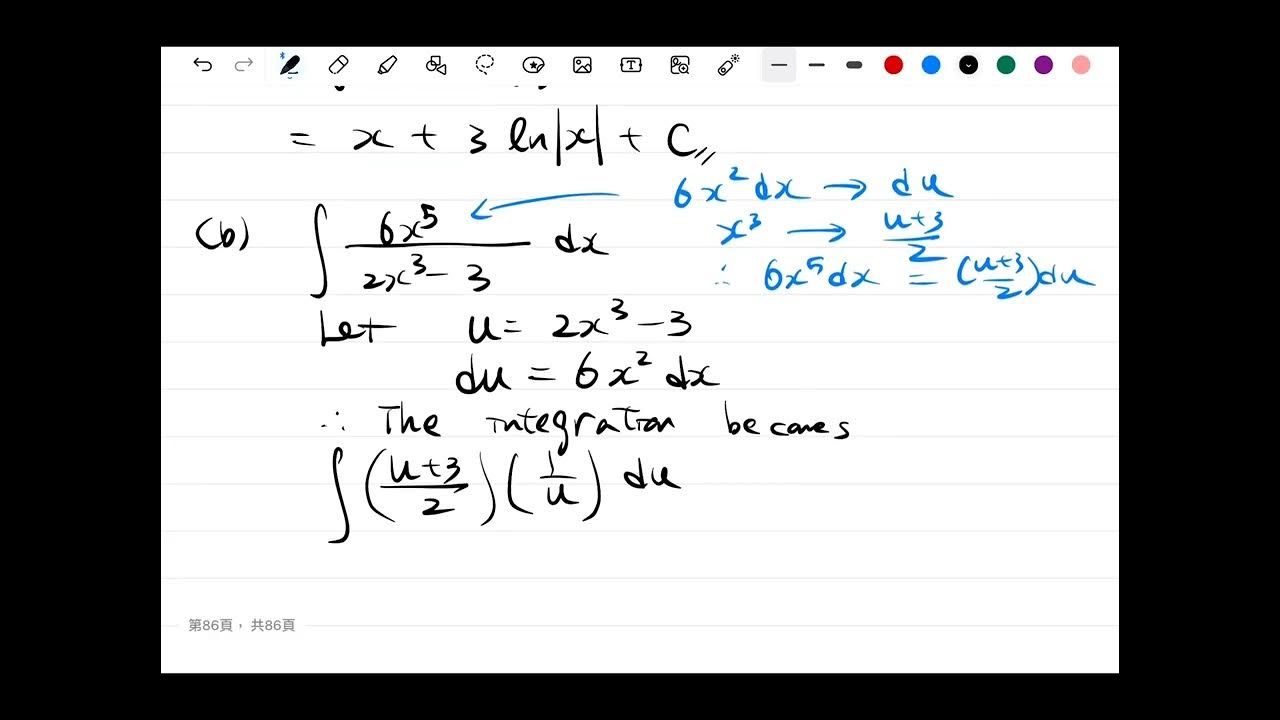 = x + 3 ln|x| + C //
6x² dx → du
(b) ∫ 6x⁵ / (2x³ - 3) dx
x³ → (u+3)/2
∴ 6x⁵dx = ((u+3)/2)du
Let u = 2x³ - 3
du = 6x² dx
∴ The integration becomes
∫ ((u+3)/2) (1/u) du
第86頁，共86頁